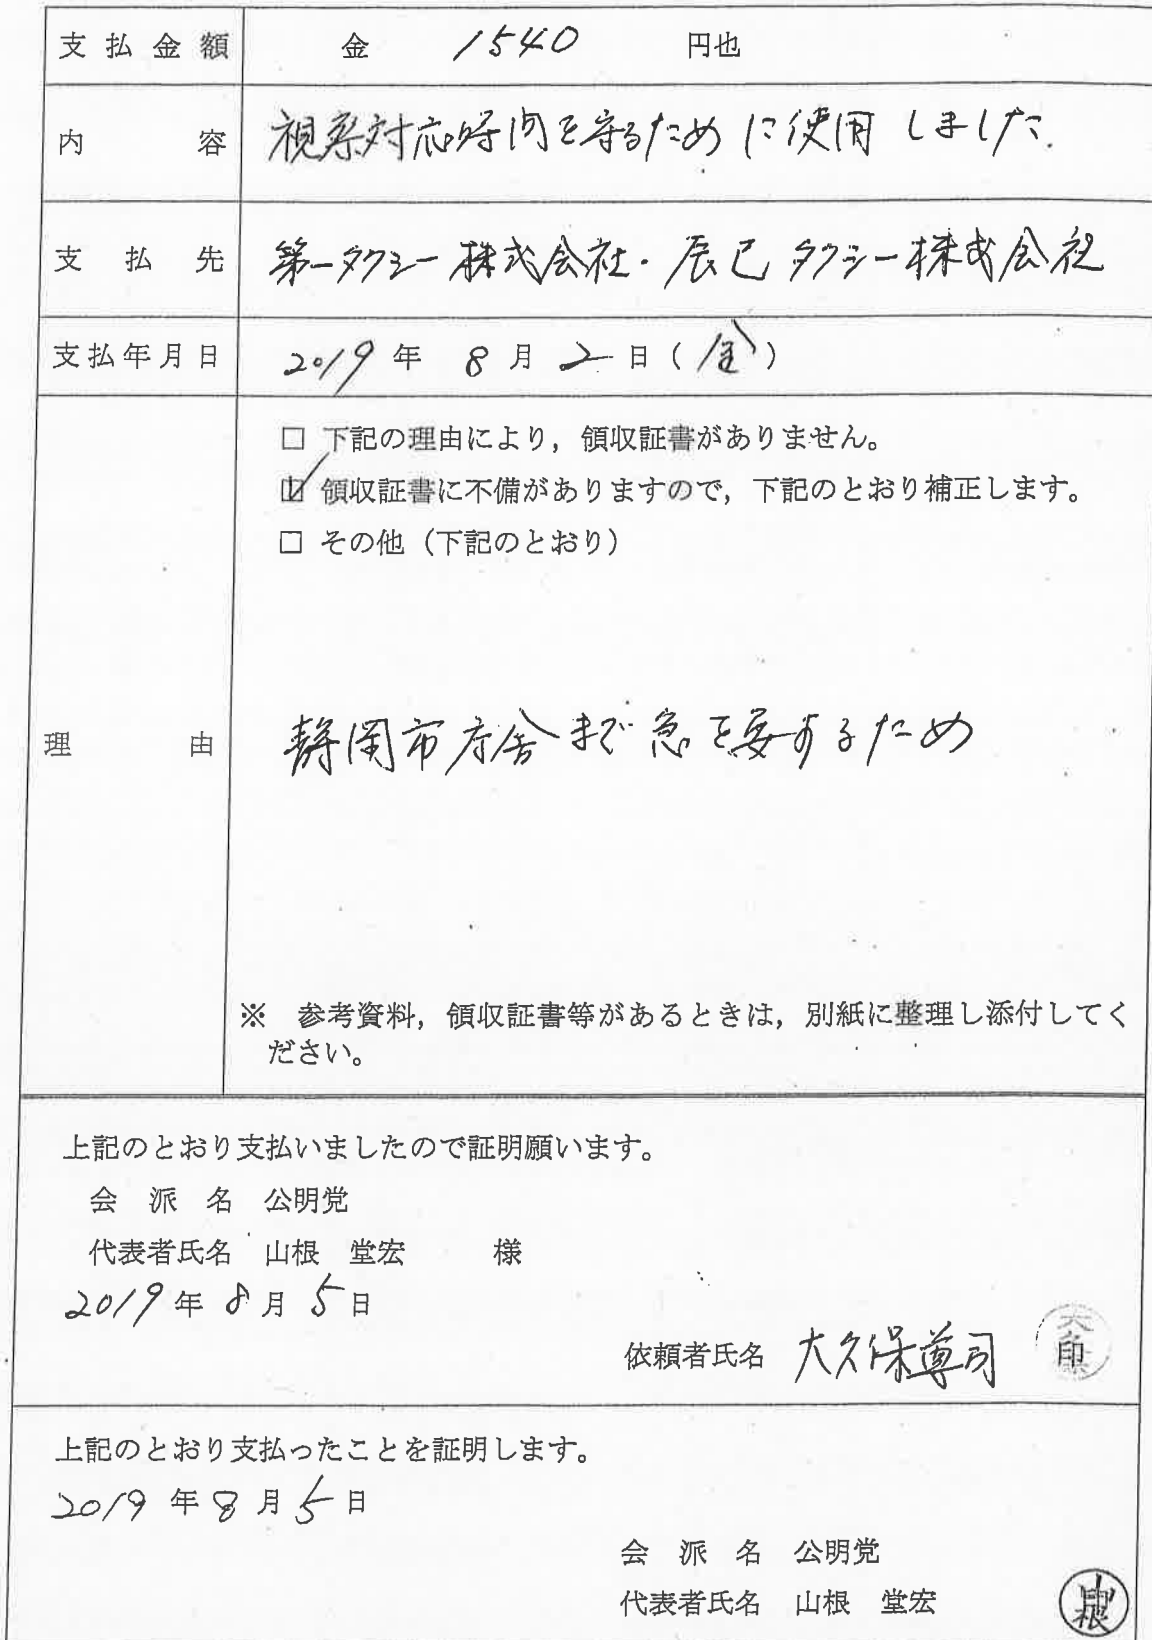 支払金額 金 1540 円也
内容 視察対応時間を守るために使用しました.
支払先 第一タクシー株式会社・辰巳タクシー株式会社
支払年月日 2019年 8月 2日(金)
□ 下記の理由により，領収証書がありません。
☑ 領収証書に不備がありますので，下記のとおり補正します。
□ その他（下記のとおり）
理由 静岡市庁舎まで急を要するため
※ 参考資料，領収証書等があるときは，別紙に整理し添付してく
ださい。
上記のとおり支払いましたので証明願います。
会派名 公明党
代表者氏名 山根 堂宏 様
2019年 8月 5日
依頼者氏名 大久保尊司 印
上記のとおり支払ったことを証明します。
2019年 8月 5日
会派名 公明党
代表者氏名 山根 堂宏 山根